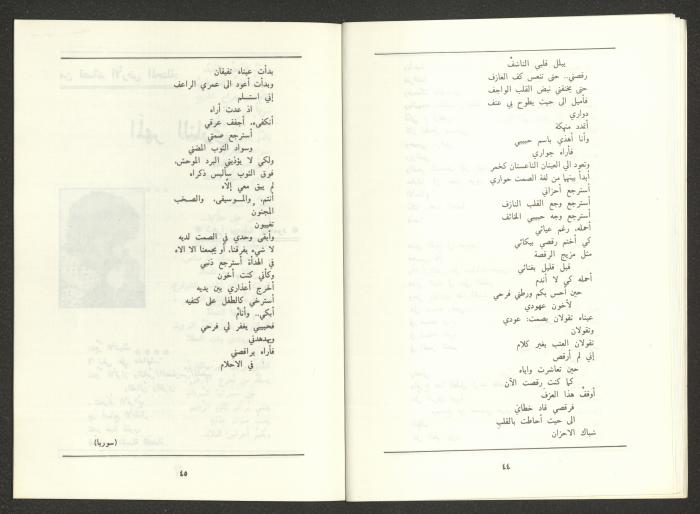 يبلل قلبي الناشفْ
رقصني.. حتى تنعس كف العازف
حتى يخنقني نبض القلب الواجف
فأميل الى حيث يطوح بي عنف
دواري
أتمدد منهكة
وأنا أهذي باسم حبيبي
فأراه جواري
وتعود الي العينان الناعستان كخمر
أبدأ بينهما من لغة الصمت حواري
أسترجع أحزاني
أسترجع وجع القلب النازف
أسترجع وجه حبيبي الخائف
أحمله، رغم عيائي
كي أختم رقصي ببكائي
مثل مزيج الرقصة
قبل قليل بغنائي
أحمله كي لا أندم
حين أحس بكم ورطني فرحي
لأخون عهودي
عيناه تقولان بصمت: عودي
وتقولان
تقولان العتب بغير كلام
إني لم أرقص
حين تعاشرت واياه
كما كنت رقصت الآن
أوقفْ هذا العزف
فرقصي قاد خطايَ
الى حيث أحاطت بالقلبِ
شباك الاحزان
٤٤
بدأت عيناه تفيقان
وبدأت أعود الى عمري الراعف
إني استسلم
اذ عدت أراه
أنكفىء، أجفف عرقي
أسترجع صمتي
وسواد الثوب المضني
ولكي لا يؤذيني البرد الموحش،
فوق الثوب سألبس ذكراه
لم يبق معي إلّاه
أنتم، والموسيقى، والصخب
المجنون
تغيبون
وأبقى وحدي في الصمت لديه
لا شيء يفرقنا، أو يجمعنا الا الاه
في الهدأة أسترجع ذنبي
وكأني كنت أخون
أخرج أعذاري بين يديه
أسترخي كالطفل على كتفيه
أبكي.. وأنامْ
فحبيبي يغفر لي فرحي
ويهدهدني
فأراه يراقصني
في الاحلام
(سوريا)
٤٥